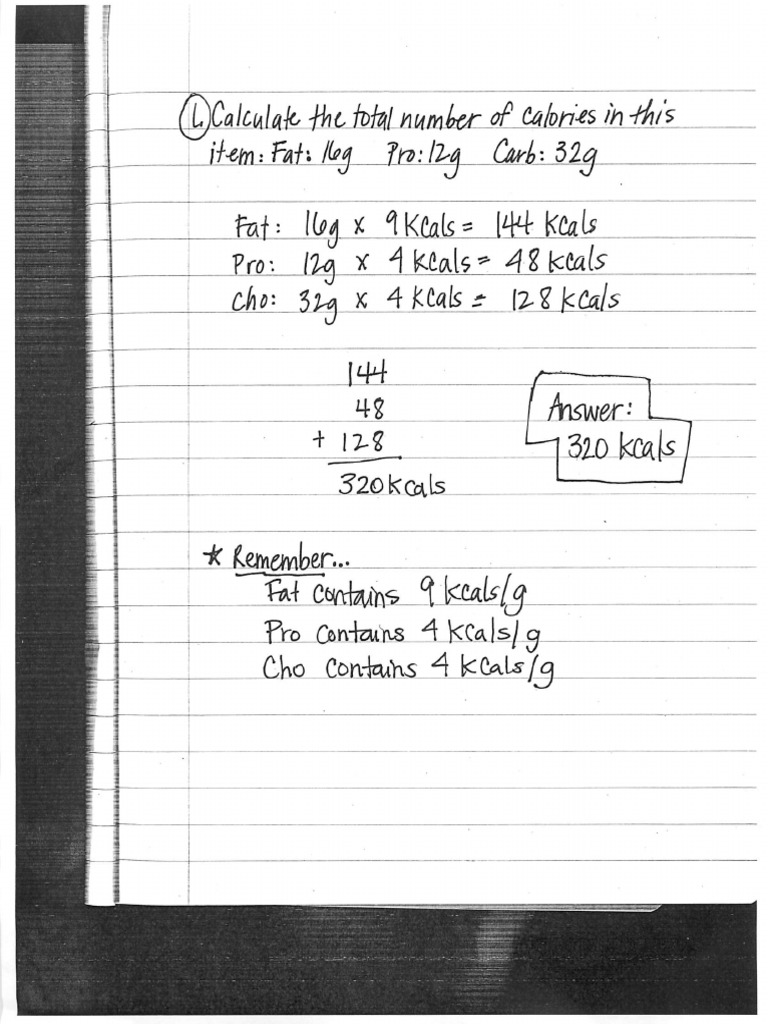 1. Calculate the total number of calories in this
item: Fat: 16g Pro: 12g Carb: 32g
Fat: 16g x 9 Kcals = 144 kcals
Pro: 12g x 4 kcals = 48 kcals
Cho: 32g x 4 kcals = 128 kcals
144
48
+ 128
320 kcals
Answer:
320 kcals
* Remember...
Fat contains 9 kcals/g
Pro contains 4 kcals/g
Cho contains 4 kcals/g